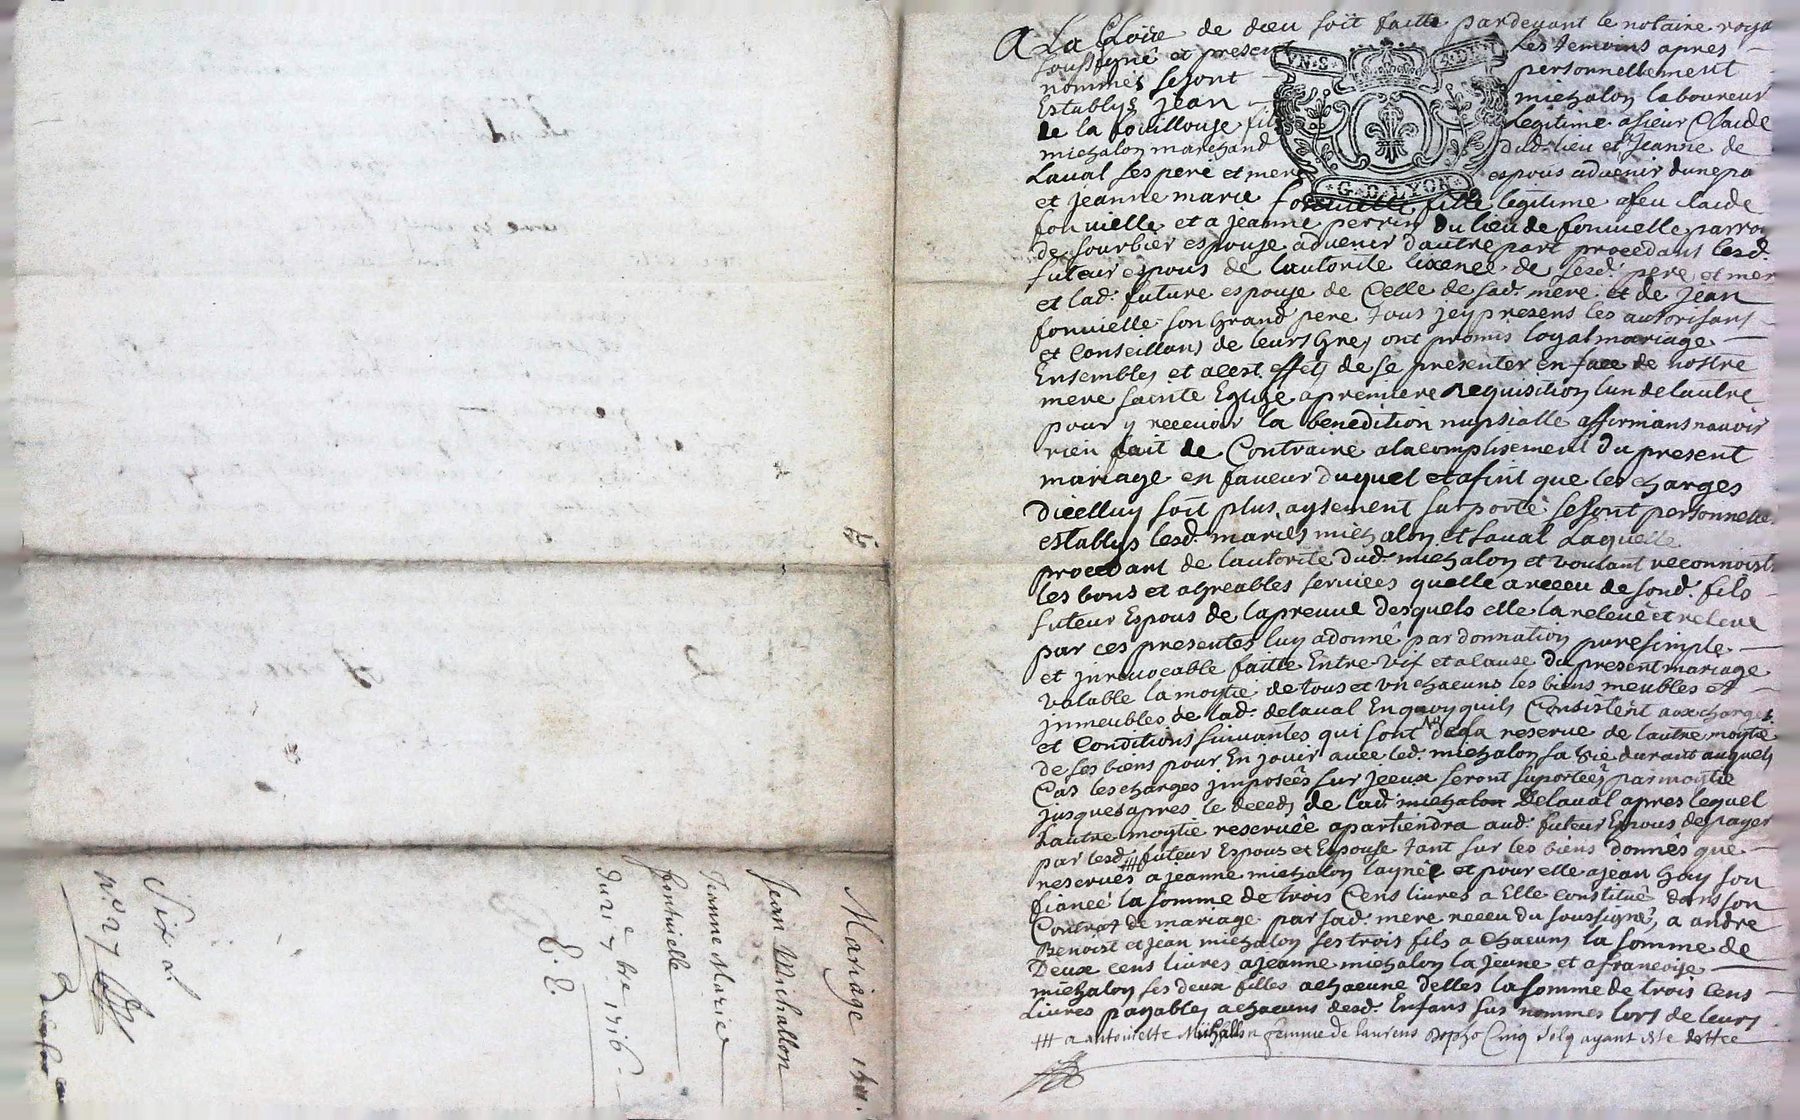 A La Gloire de dieu soit faitte pardevant le notaire roya
soussigné et present les temoins apres
nommés se sont personnellement
Establys jean michalon laboureur
de la fouillouse fils legitime a sieur Claide
michalon marchand dud. lieu et a jeanne de
Laval ses pere et mere espous advenir dune pa
et jeanne marie fonvielle fille legitime a feu claide
fonvielle et a jeanne perrin du lieu de fonvielle parroi
de sourbier espouse advenir dautre part procedans lesd.
futeur espous de lautorité lixence de sesd. pere et mer
et lad. future espouse de Celle de sad. mere et de jean
fonvielle son Grand pere tous jcy presens les autorisans
et Conseillans de leurs Gres ont promis loyal mariage
Ensembles et a cest effets de se presenter en face de nostre
mere sainte Eglize a premiere requisition lun de lautre
pour y recevoir la benedition nupsialle affirmans navoir
rien fait de Contraire a lacomplisement du present
mariage en faveur duquel et afint que les charges
Dicelluy soit plus aysement surporté se sont personnelle.
establys lesd. mariés michalon et Laval Laquelle
procedant de lautorité dud. michalon et voulant reconnoist.
les bons et aGreables services quelle a receu de sond. fils
futeur Espous de la preuve desquels elle la relevé et releve
par ces presentes luy a donné par donnation pure simple
et jnrevocable faitte Entre vif et a Cause du present mariage
valable la moytié de tous et vn chacuns les biens meubles et
jmmeubles de lad. delaval En quoy quils Consistent aux charges
et Conditions suivantes qui sont No dela reserve de lautre moytié
de ses biens pour En jouir avec led. michalon sa vie durant auquels
Cas les charges jmposées sur jceux seront suportées par moytié
jusques apres le deceds de lad. michalon Delaval apres lequel
Lautre moytié reservée apartiendra aud. futeur Espous de payer
par lesd. futeur Espous et Espouse tant sur les biens donnés que
reserves a jeanne michalon laynée et pour elle a jean Gay son
fiancé la somme de trois Cens livres a Elle constitué dans son
Contrat de mariage par sad. mere receu du soussigné, a andre
Benoist et jean michalon ses trois fils a chacuns la somme de
Deux cens livres a jeanne michalon la jeune et a francoise
michalon ses deux filles a chacune delles la somme de trois Cens
Livres payables a chacuns desd. Enfans sus nommes lors de leurs
+++ a antoinette Michallon femme de laurens Cinq solz ayant esté dottée
Mariage
Jean Michallon
Jeanne Marie
fontvielle
du 21e 7bre 1716
E. E.
Six d.
n.o 27